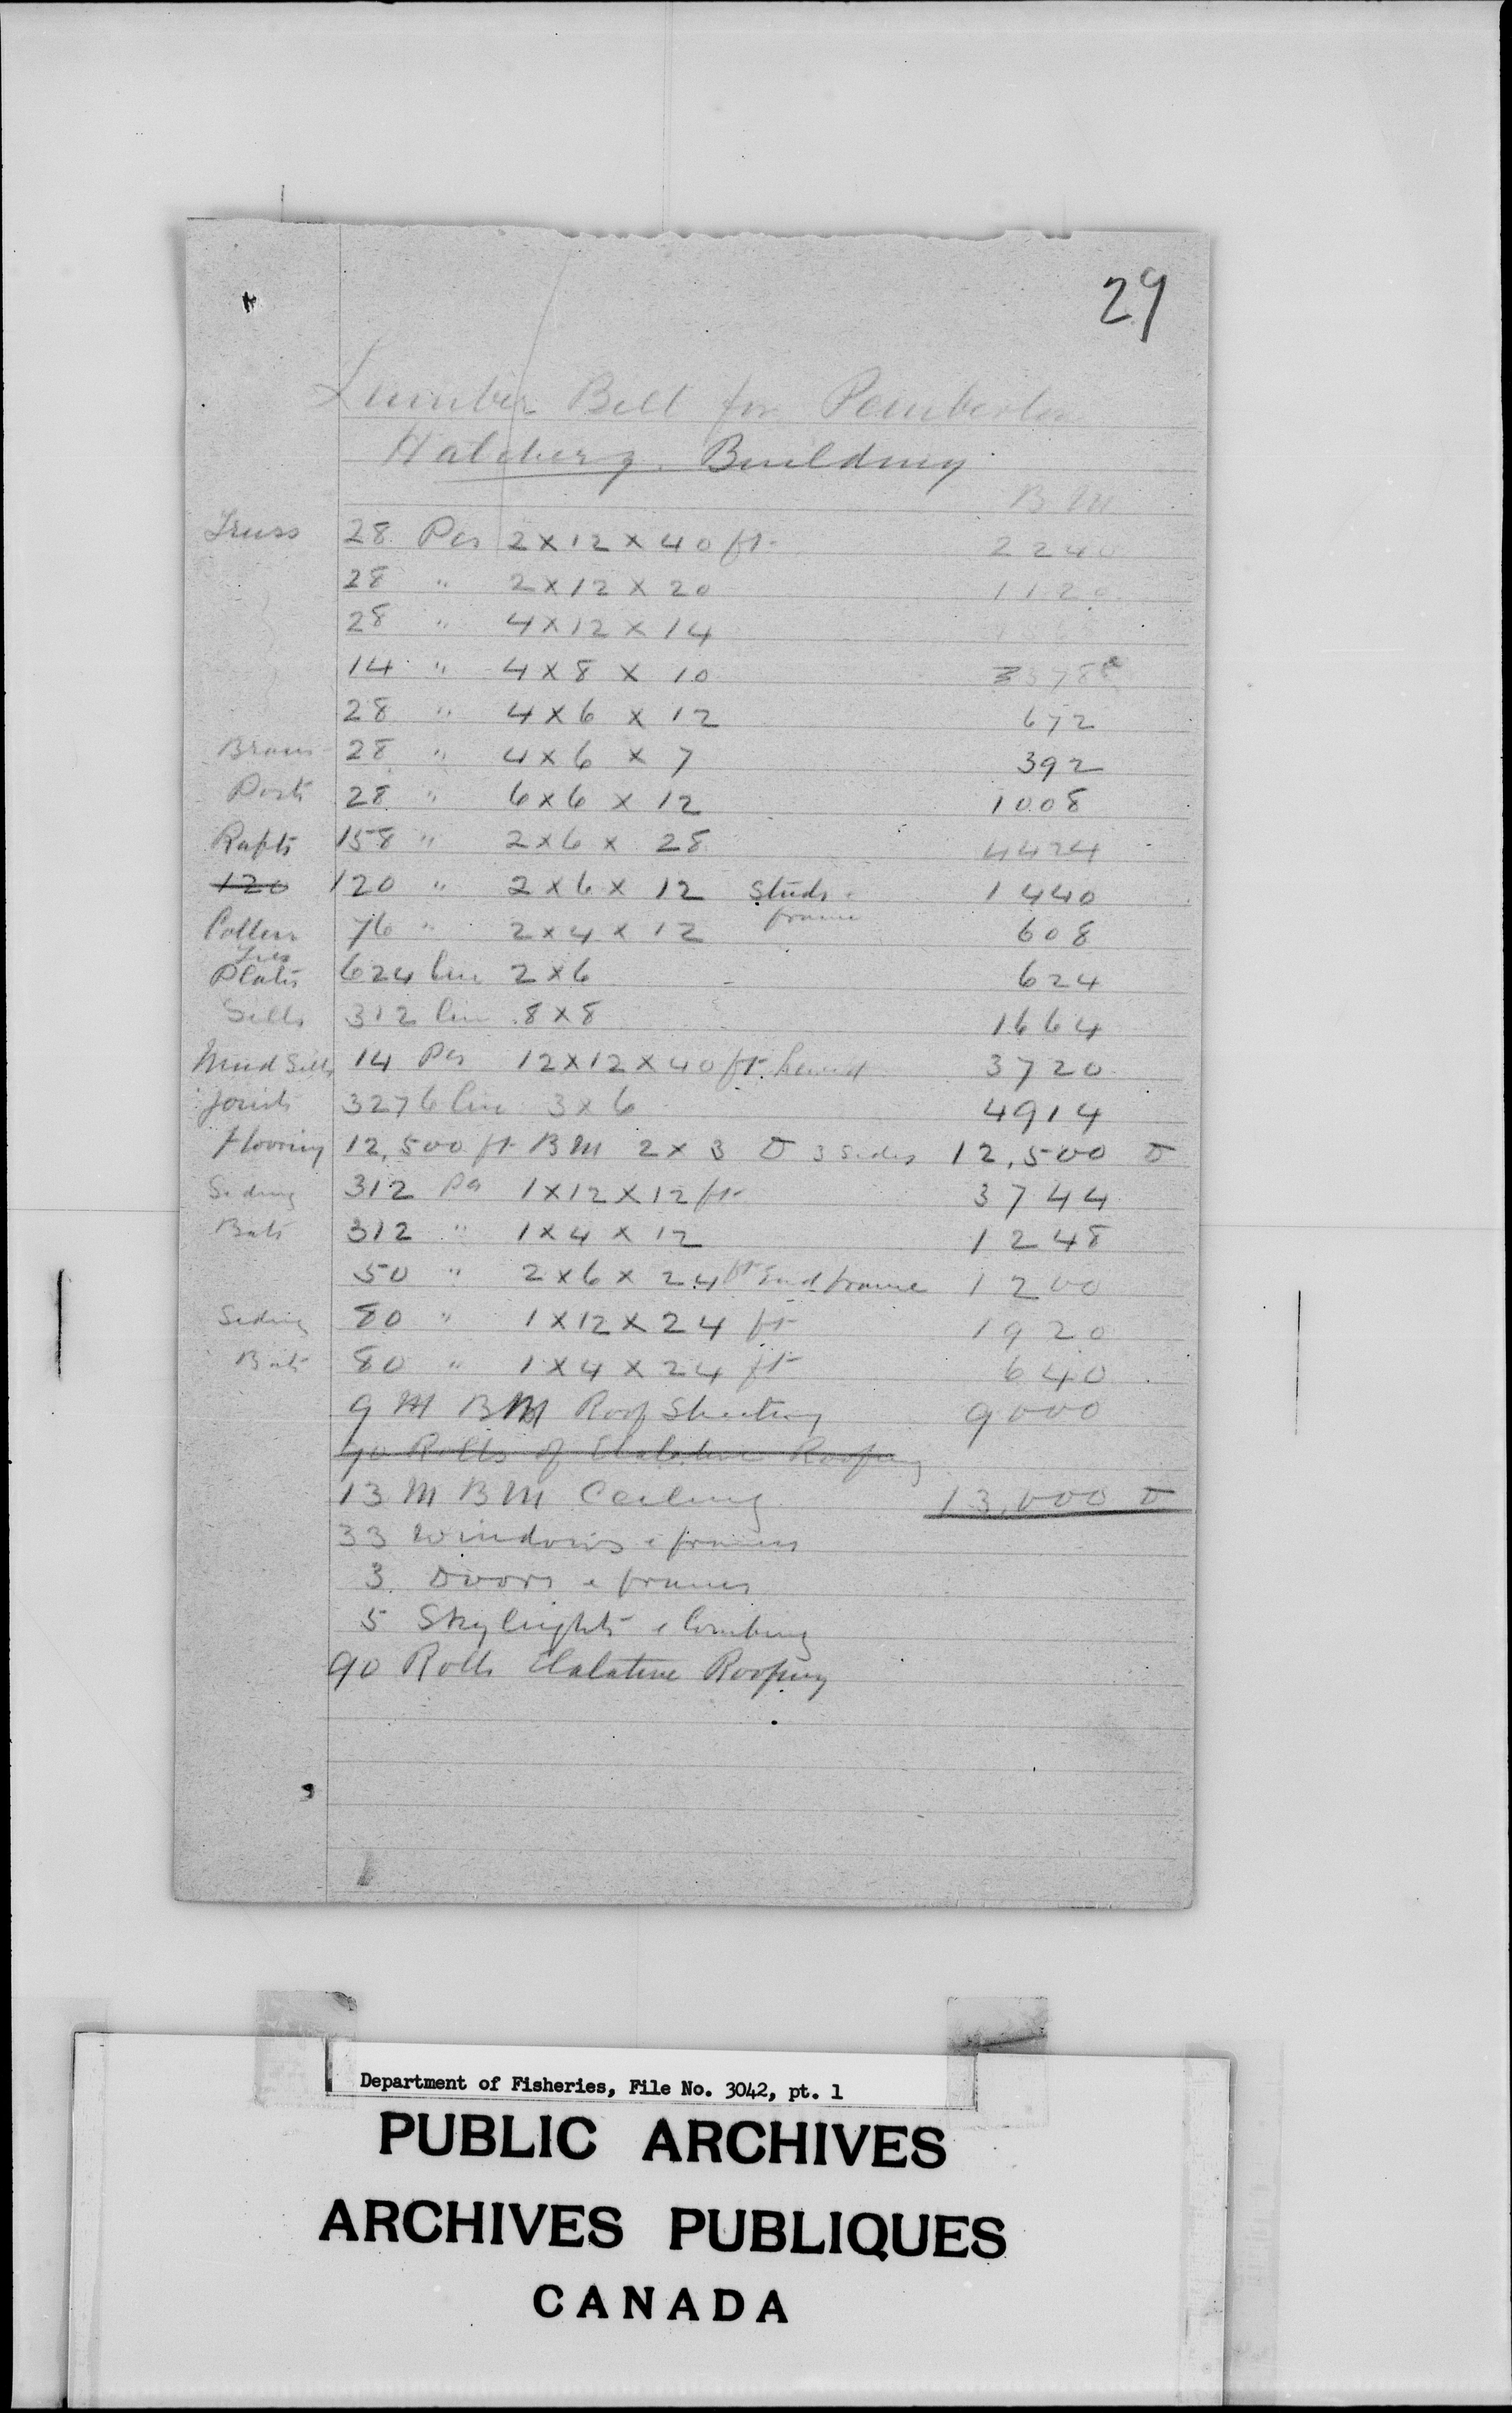 29
Lumber Bill for Pemberton
Hatchery Building
B.M.
Truss 28 Pcs 2x12x40 ft. 2240
28 " 2x12x20 1120
28 " 4x12x14
14 " 4x8x10 378
28 " 4x6x12 672
Braces 28 " 4x6x7 392
Posts 28 " 6x6x12 1008
Rafts 158 " 2x6x28 4424
120 120 " 2x6x12 Studs & frame 1440
Coller Ties 76 " 2x4x12 608
Plates 624 lin 2x6 624
Sills 312 lin 8x8 1664
Mud Sills 14 Pcs 12x12x40 ft. hewed 3720
Joists 3276 lin 3x6 4914
Flooring 12,500 ft BM 2x3 D 3 Sides 12,500 D
Siding 312 Pcs 1x12x12 ft 3744
Bats 312 " 1x4x12 1248
50 " 2x6x24 ft End frame 1200
Siding 80 " 1x12x24 ft 1920
Bats 80 " 1x4x24 ft 640
9 M BM Roof Sheeting 9000
90 Rolls of Elalative Roofing
13 M BM Ceiling 13,000 D
33 Windows & frames
3 Doors & frames
5 Skylights & Combing
90 Rolls Elalative Roofing
Department of Fisheries, File No. 3042, pt. 1
PUBLIC ARCHIVES
ARCHIVES PUBLIQUES
CANADA